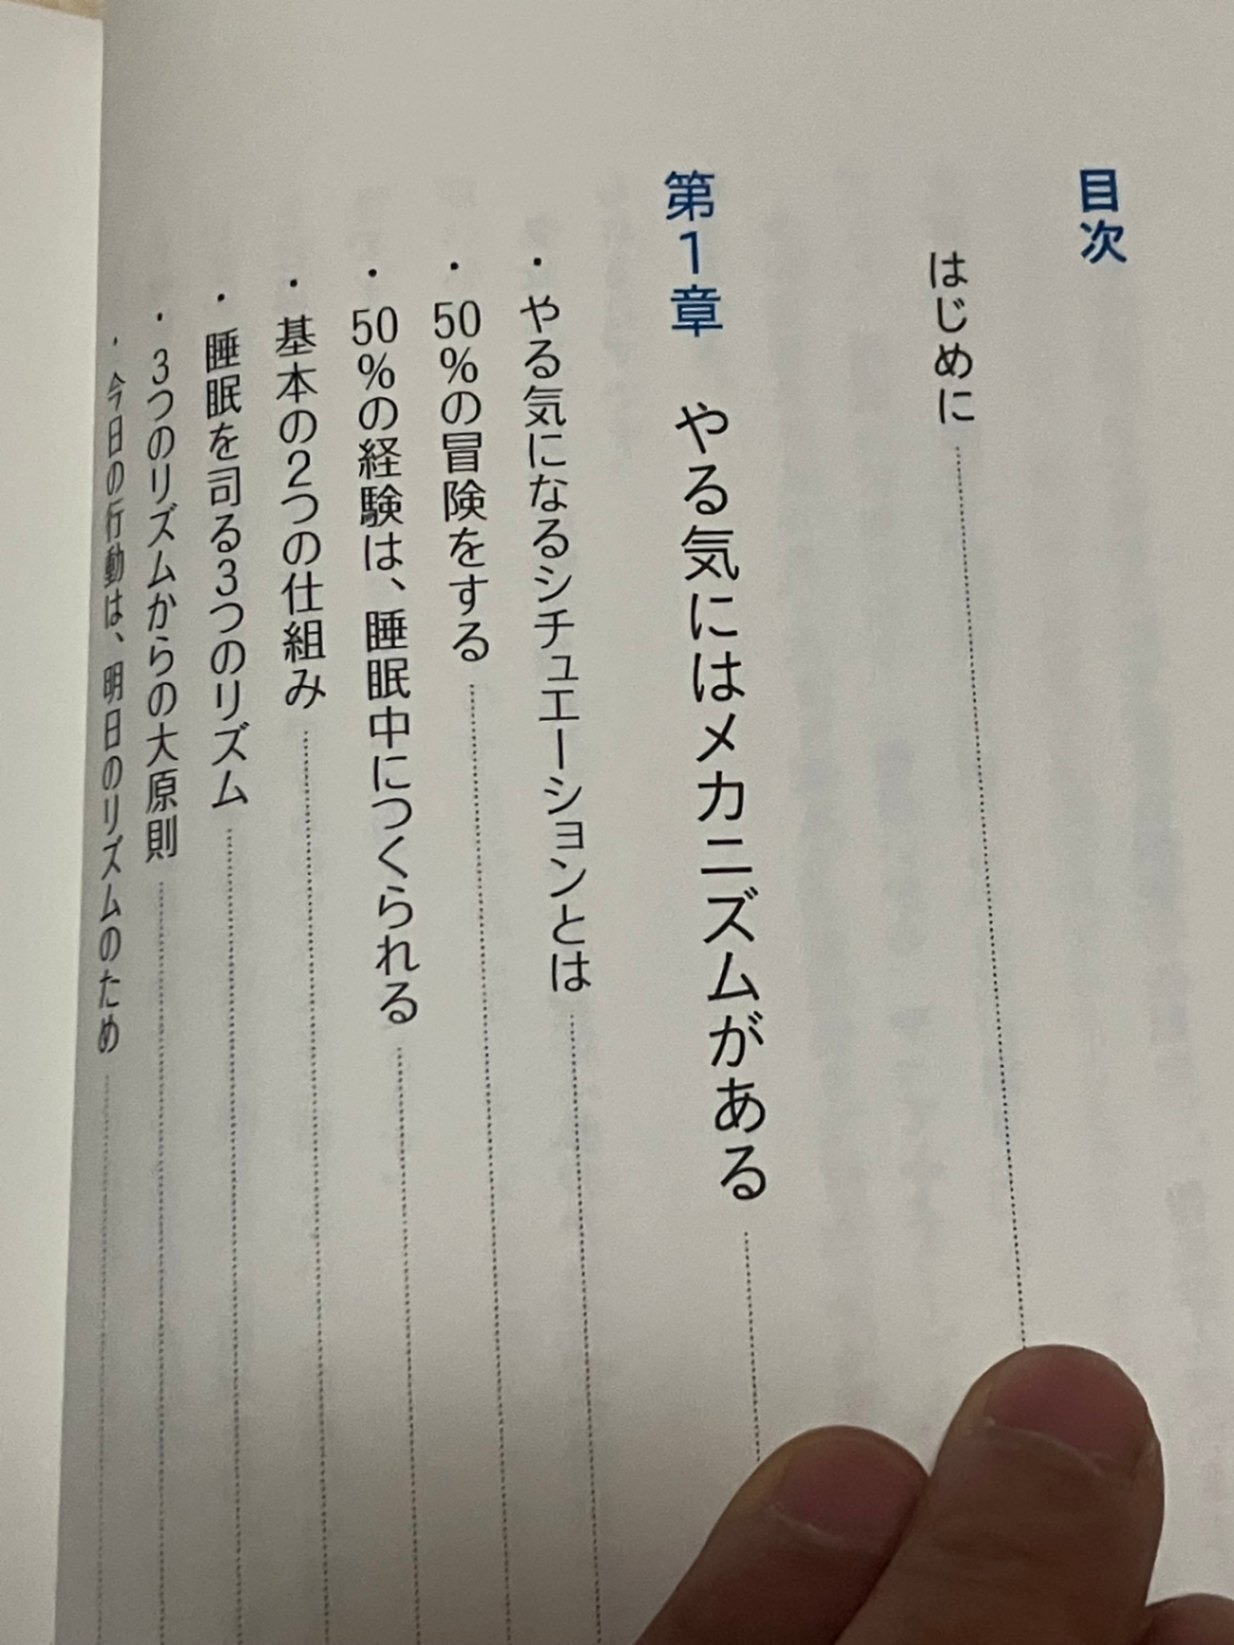 目次
はじめに
第1章 やる気にはメカニズムがある
・やる気になるシチュエーションとは
・50%の冒険をする
・50%の経験は、睡眠中につくられる
・基本の2つの仕組み
・睡眠を司る3つのリズム
・3つのリズムからの大原則
・今日の行動は、明日のリズムのため